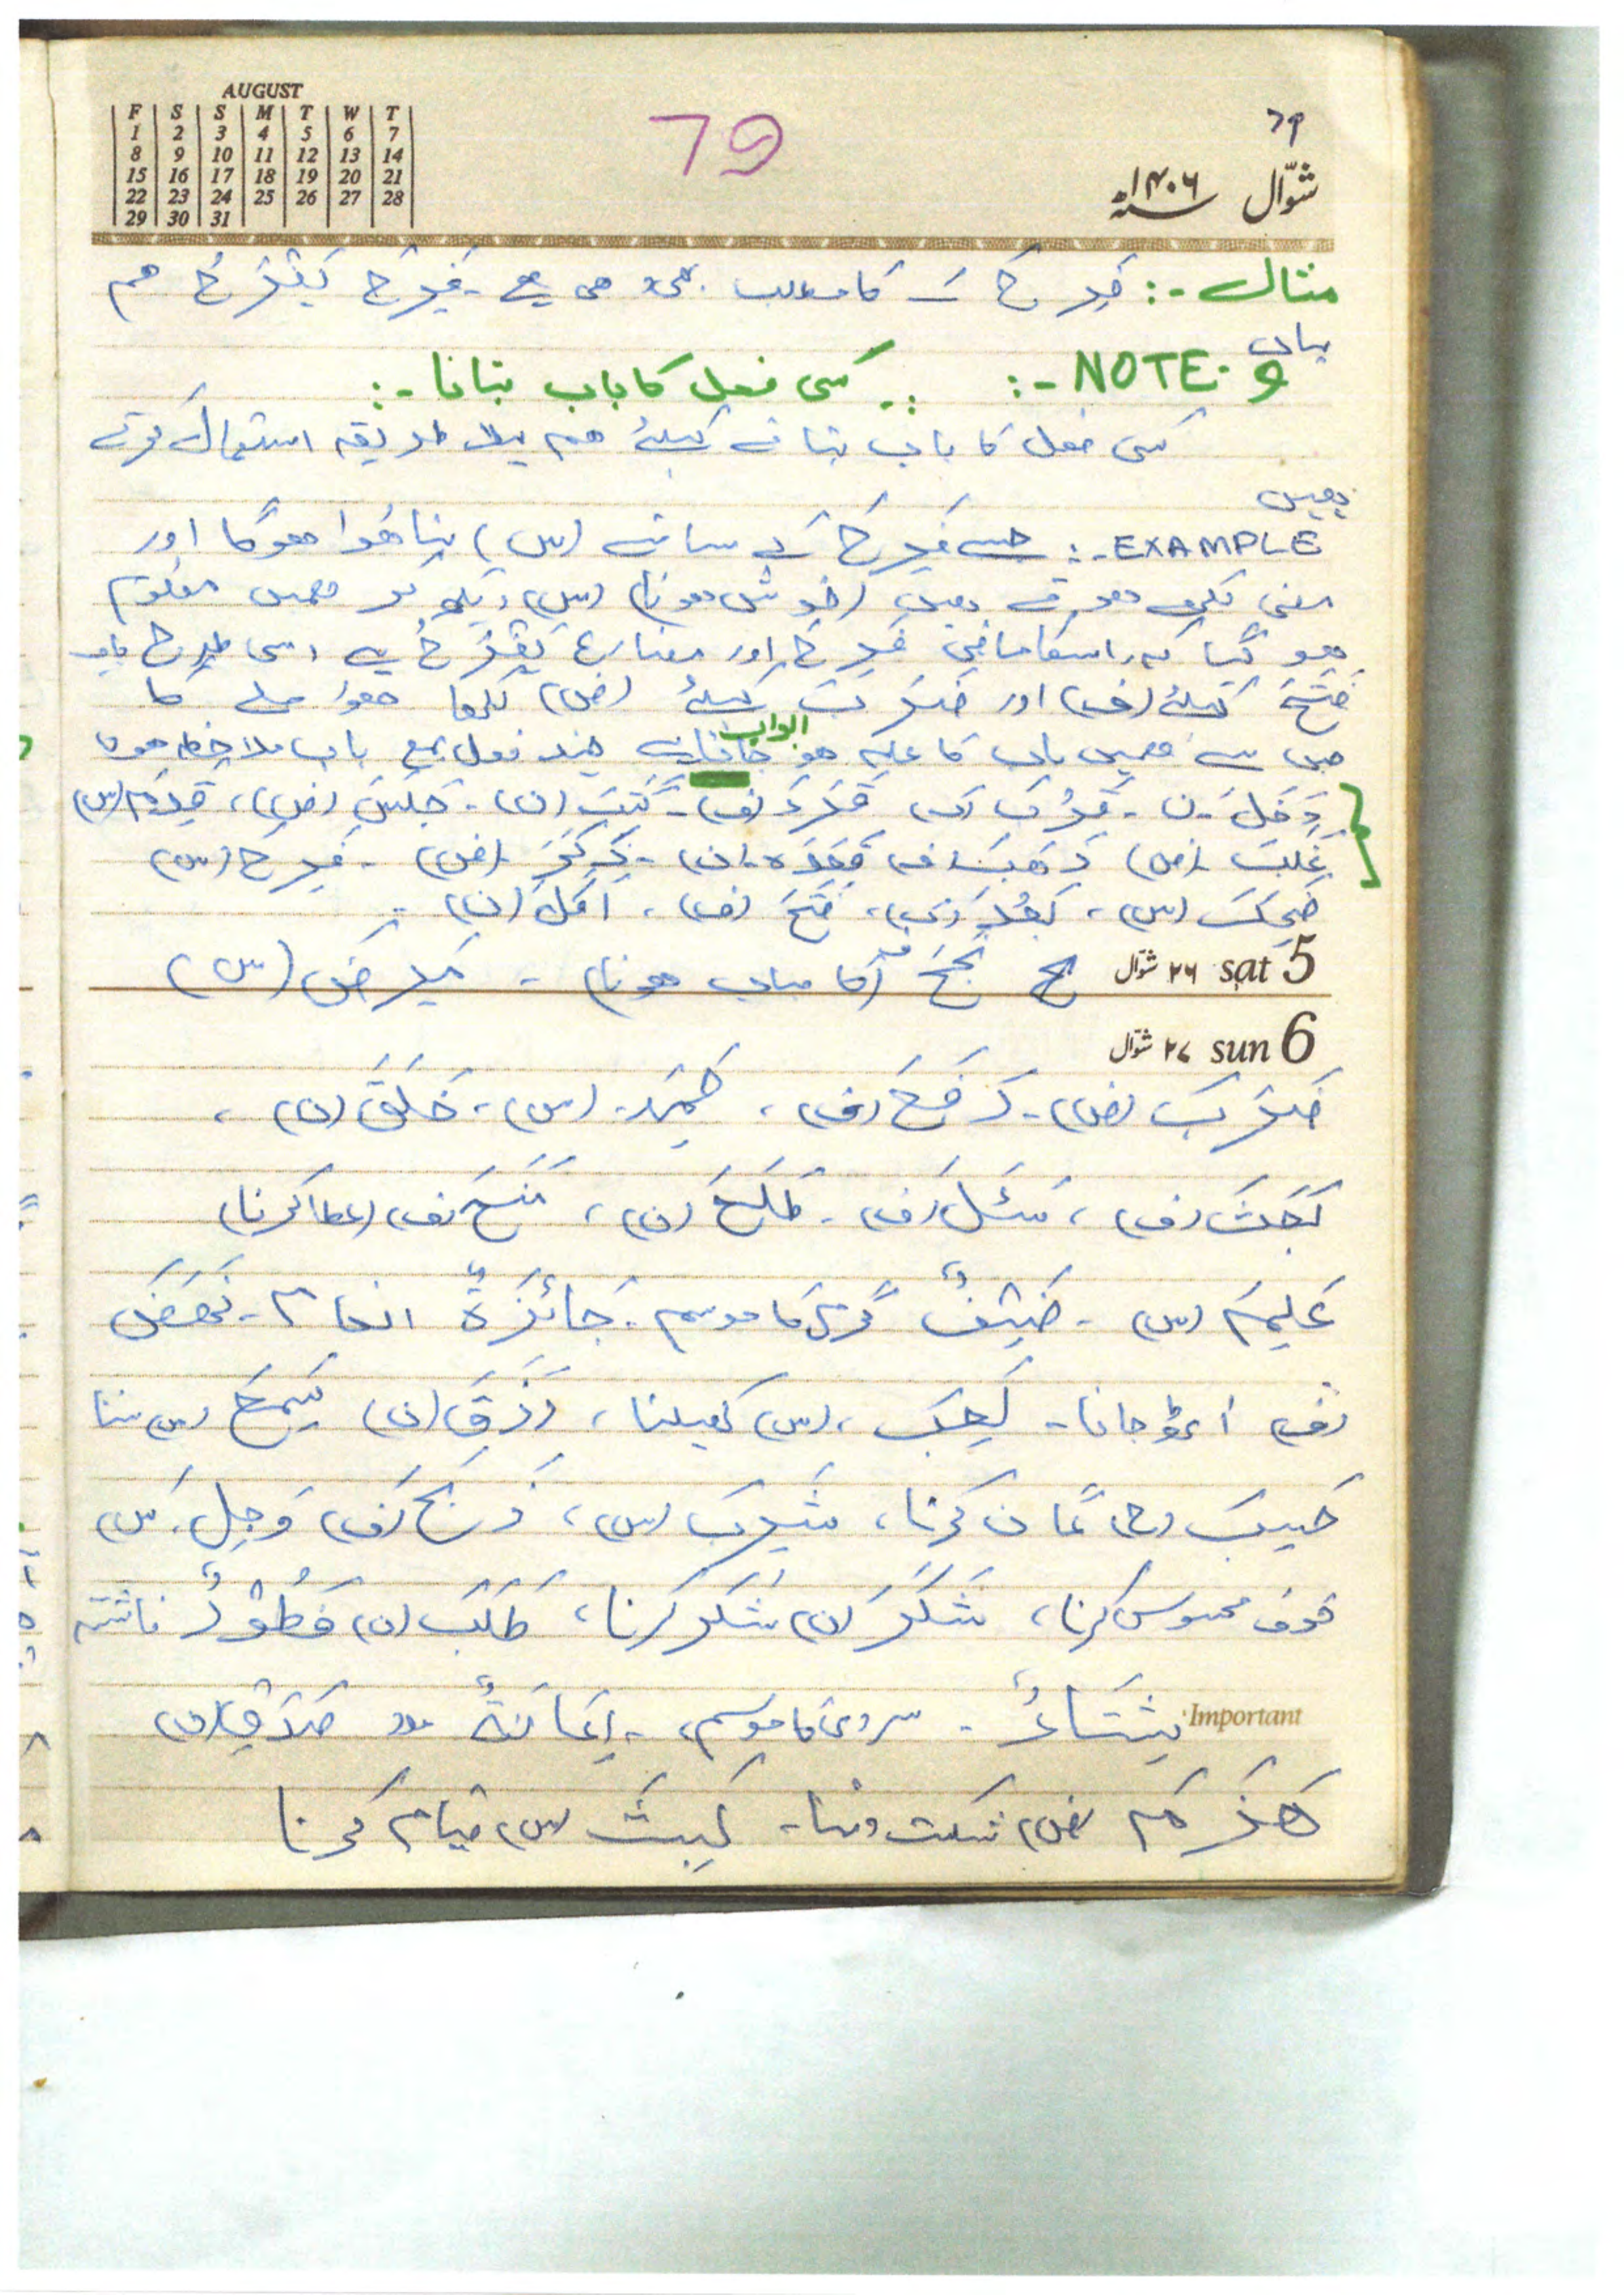 AUGUST
F S S M T W T
1 2 3 4 5 6 7
8 9 10 11 12 13 14
15 16 17 18 19 20 21
22 23 24 25 26 27 28
29 30 31
79
۷۹
شوّال ۱۴۰۶ھ
مثال :- فَرِحَ کا مطلب بھی یہی ہے۔ فَرِحَ یَفْرَحُ ہم
یہاں
NOTE :- کسی فعل کا باب بتانا :-
کسی فعل کا باب بتانے کیلئے ہم پہلا طریقہ استعمال کرتے
ہیں
EXAMPLE :- جیسے فَرِحَ کے ساتھ (س) بنا ہوا ہوگا اور
معنی لکھے ہوئے ہیں (خوش ہونا) (س) دیکھ کر ہمیں معلوم
ہو گیا کہ اسکا ماضی فَرِحَ اور مضارع یَفْرَحُ ہے اسی طرح باب
فَتَحَ کیلئے (ف) اور ضَرَبَ کیلئے (ض) لکھا ہوا ملے گا
جس سے ہمیں باب کا علم ہو جاتا ہے چند فعل بمع ابواب ملاحظہ ہوں
دَخَلَ۔ن۔ قَرُبَ (ک) قَرَءَ (ف)۔ کَتَبَ (ن)۔ جَلَسَ (ض)، قَدِمَ (س)
غَلَبَ (ض) ذَهَبَ (ف) قَعَدَ (ن)۔ (ض)۔ فَرِحَ (س)
ضَحِکَ (س)، بَعُدَ (ک)، فَتَحَ (ف)، اَکَلَ (ن)۔
5 sat ۲۶ شوّال نَجَحَ ف (کامیاب ہونا)۔ مَرِضَ (س)
6 sun ۲۷ شوّال
ضَرَبَ (ض)۔ رَفَعَ (ف)، حَمِدَ (س)، خَلَقَ (ن)،
بَحَثَ (ف)، سَئَلَ (ف)۔ طَلَعَ (ن)، مَنَحَ (ف) (عطا کرنا)
عَلِمَ (س)۔ صَیْفٌ گرمی کا موسم۔ جَائِزَةٌ انعام۔ نَهَضَ
(ف) اٹھ جانا۔ لَعِبَ (س) کھیلنا، رَزَقَ (ن) سَمِعَ (س) سننا
حَسِبَ (ح) گمان کرنا، شَرِبَ (س)، ذَبَحَ (ف) وَجِلَ (س)
خوف محسوس کرنا، شَکَرَ (ن) شکر کرنا، طَلَبَ (ن) فَطُوْرٌ ناشتہ
Important شِتَاءٌ۔ سردی کا موسم۔ اِعَانَةٌ مدد صَدَقَ (ن)
هَزَمَ (ض) شکست دینا۔ لَبِثَ (س) قیام کرنا